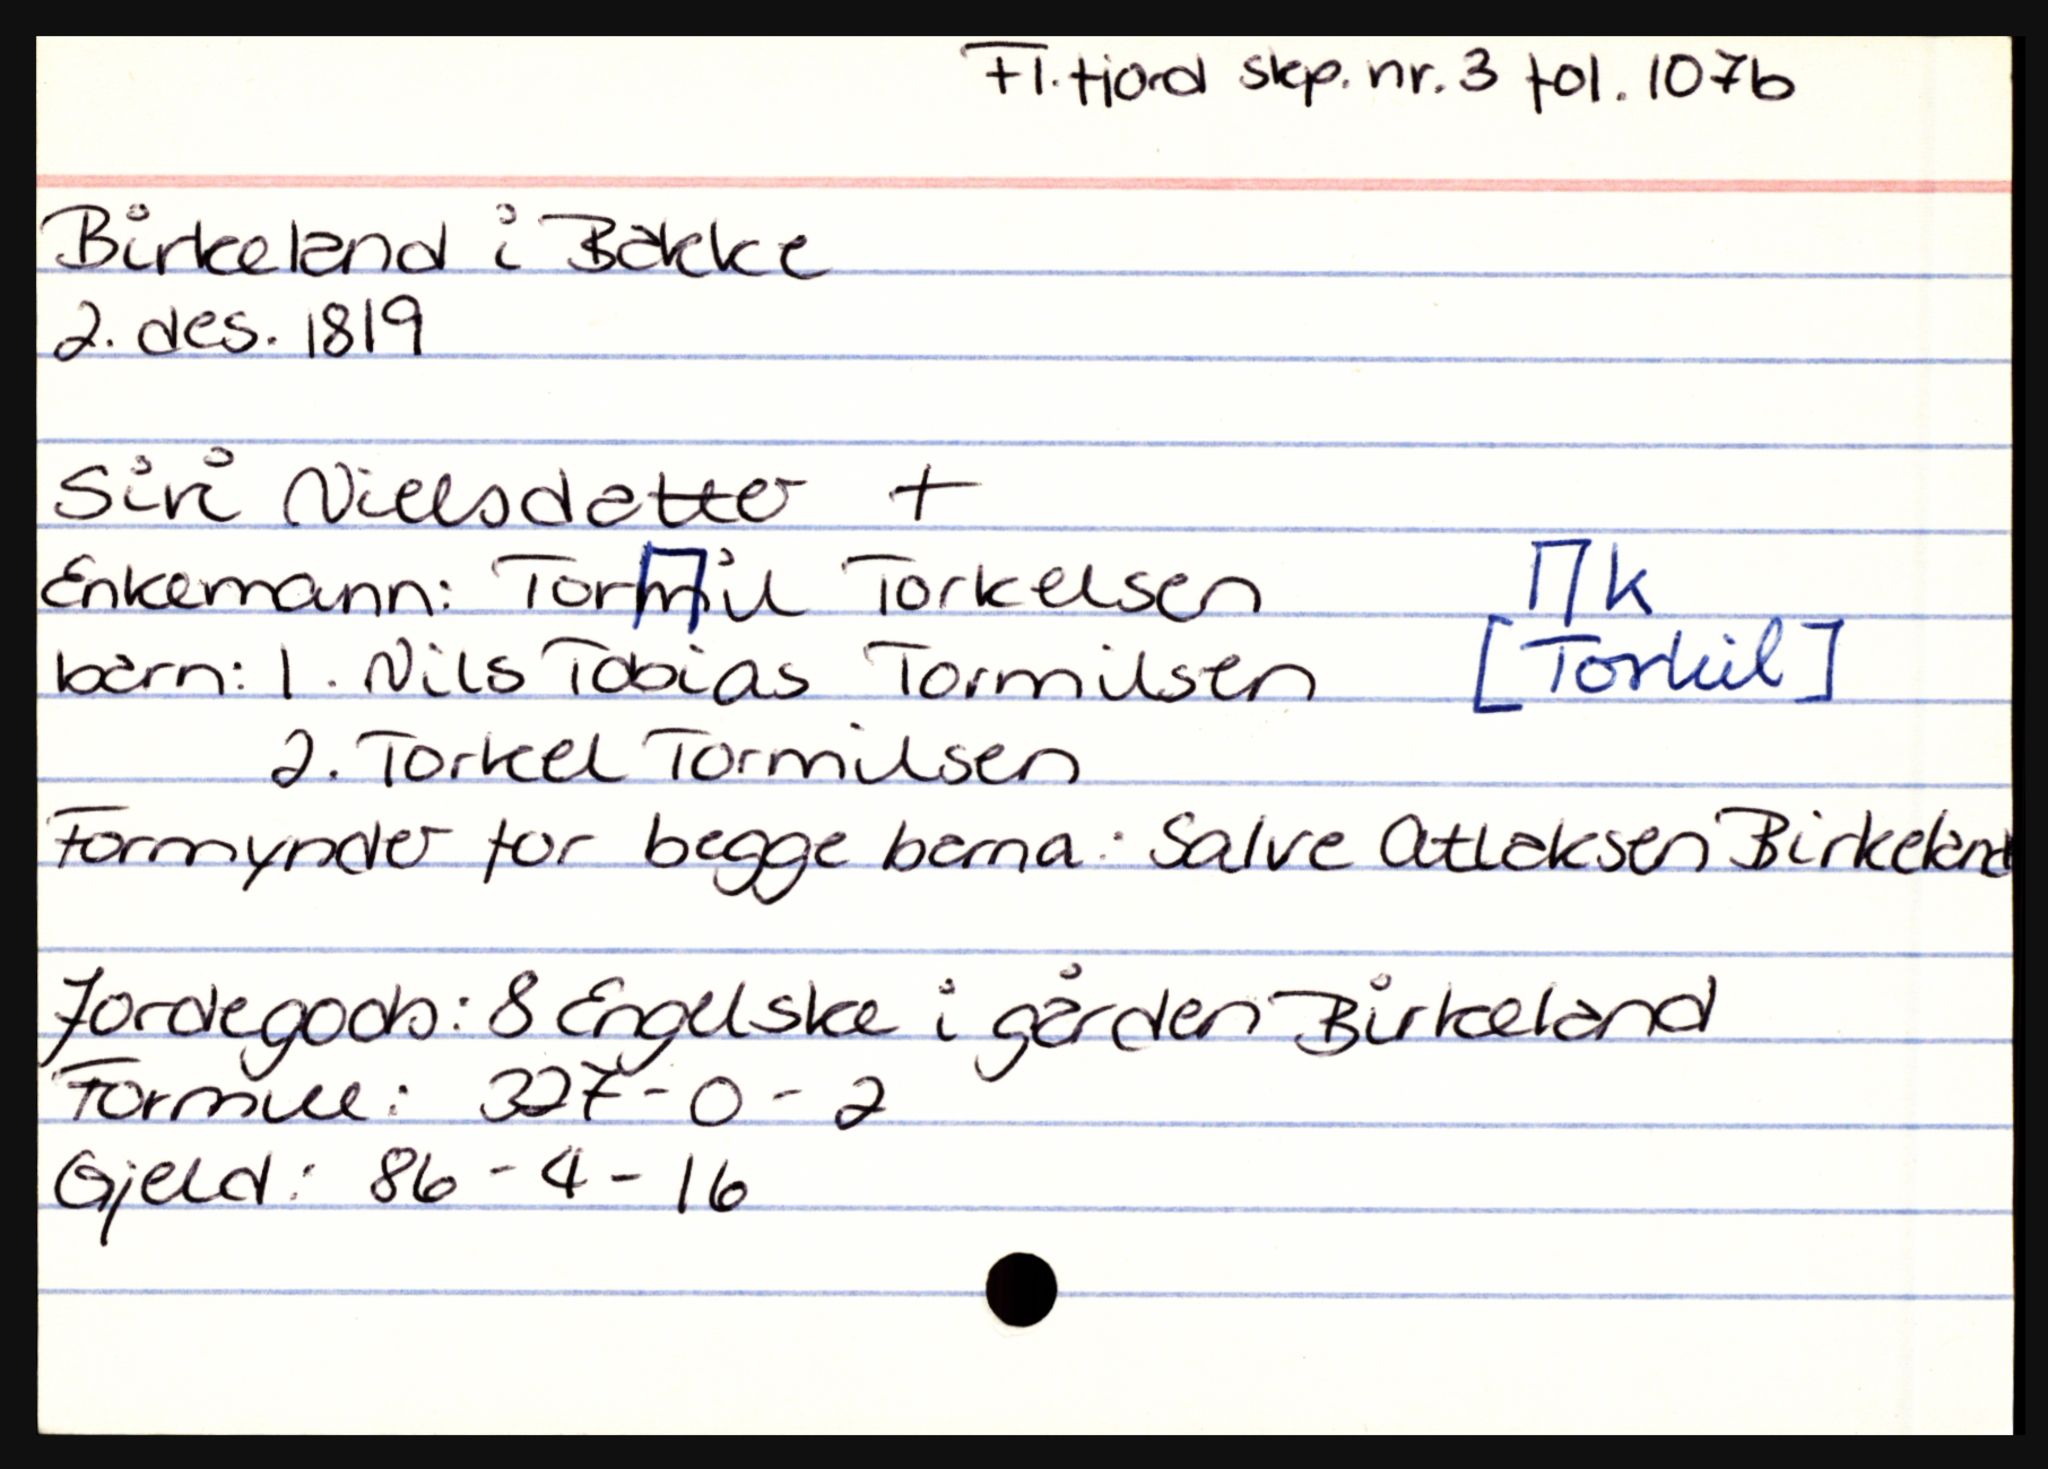 Fl.fjord skp. nr. 3 fol. 107b
Birkeland i Bakke
2. des. 1819
Siri Nielsdatter +
Enkemann: Tormil Torkelsen ∏ k
barn: 1. Nils Tobias Tormilsen [Torkil]
2. Torkel Tormilsen
Formynder for begge barna: Salve Atlaksen Birkeland
Jordegods: 8 Engelske i gården Birkeland
Formue: 327 - 0 - 2
Gjeld: 86 - 4 - 16